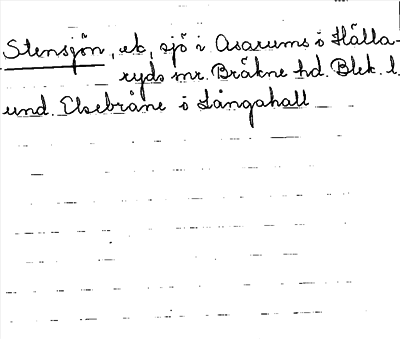 Stensjön, ek, sjö i Asarums o Hälla-
ryds snr. Bräkne hd. Blek. l.
und. Elsebråne o Långahall